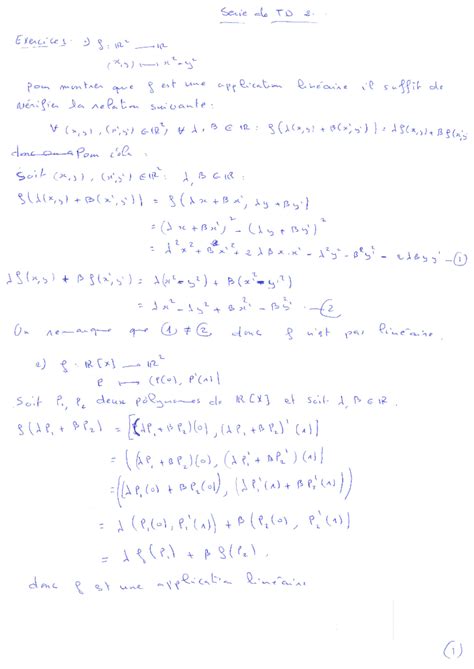 Serie de TD 2.
Exercice 1 1) f: ℝ² → ℝ
(x,y) ↦ x² - y²
pour montrer que f est une application linéaire il suffit de
vérifier la relation suivante:
∀ (x,y), (x',y') ∈ ℝ², ∀ λ, B ∈ ℝ : f(λ(x,y) + B(x',y')) = λf(x,y) + B f(x',y')
Pour cela.
Soit (x,y), (x',y') ∈ ℝ² : λ, B ∈ ℝ:
f(λ(x,y) + B(x',y')) = f(λx + Bx', λy + By')
= (λx + Bx')² - (λy + By')²
= λ²x² + B²x'² + 2λBx·x' - λ²y² - B²y'² - 2λByy' — ①
λf(x,y) + B f(x',y') = λ(x² - y²) + B(x'² - y'²)
= λx² - λy² + Bx'² - By'² — ②
On remarque que ① ≠ ② donc f n'est pas linéaire.
2) f: ℝ[X] → ℝ²
P ↦ (P(0), P'(1))
Soit P₁, P₂ deux polynomes de ℝ[X] et soit λ, B ∈ ℝ.
f(λP₁ + BP₂) = [(λP₁ + BP₂)(0), (λP₁ + BP₂)'(1)]
= ((λP₁ + BP₂)(0), (λP₁' + BP₂')(1))
= ((λP₁(0) + BP₂(0), (λP₁'(1) + BP₂'(1)))
= λ(P₁(0), P₁'(1)) + B(P₂(0), P₂'(1)]
= λf(P₁) + B f(P₂).
donc f est une application linéaire
(1)